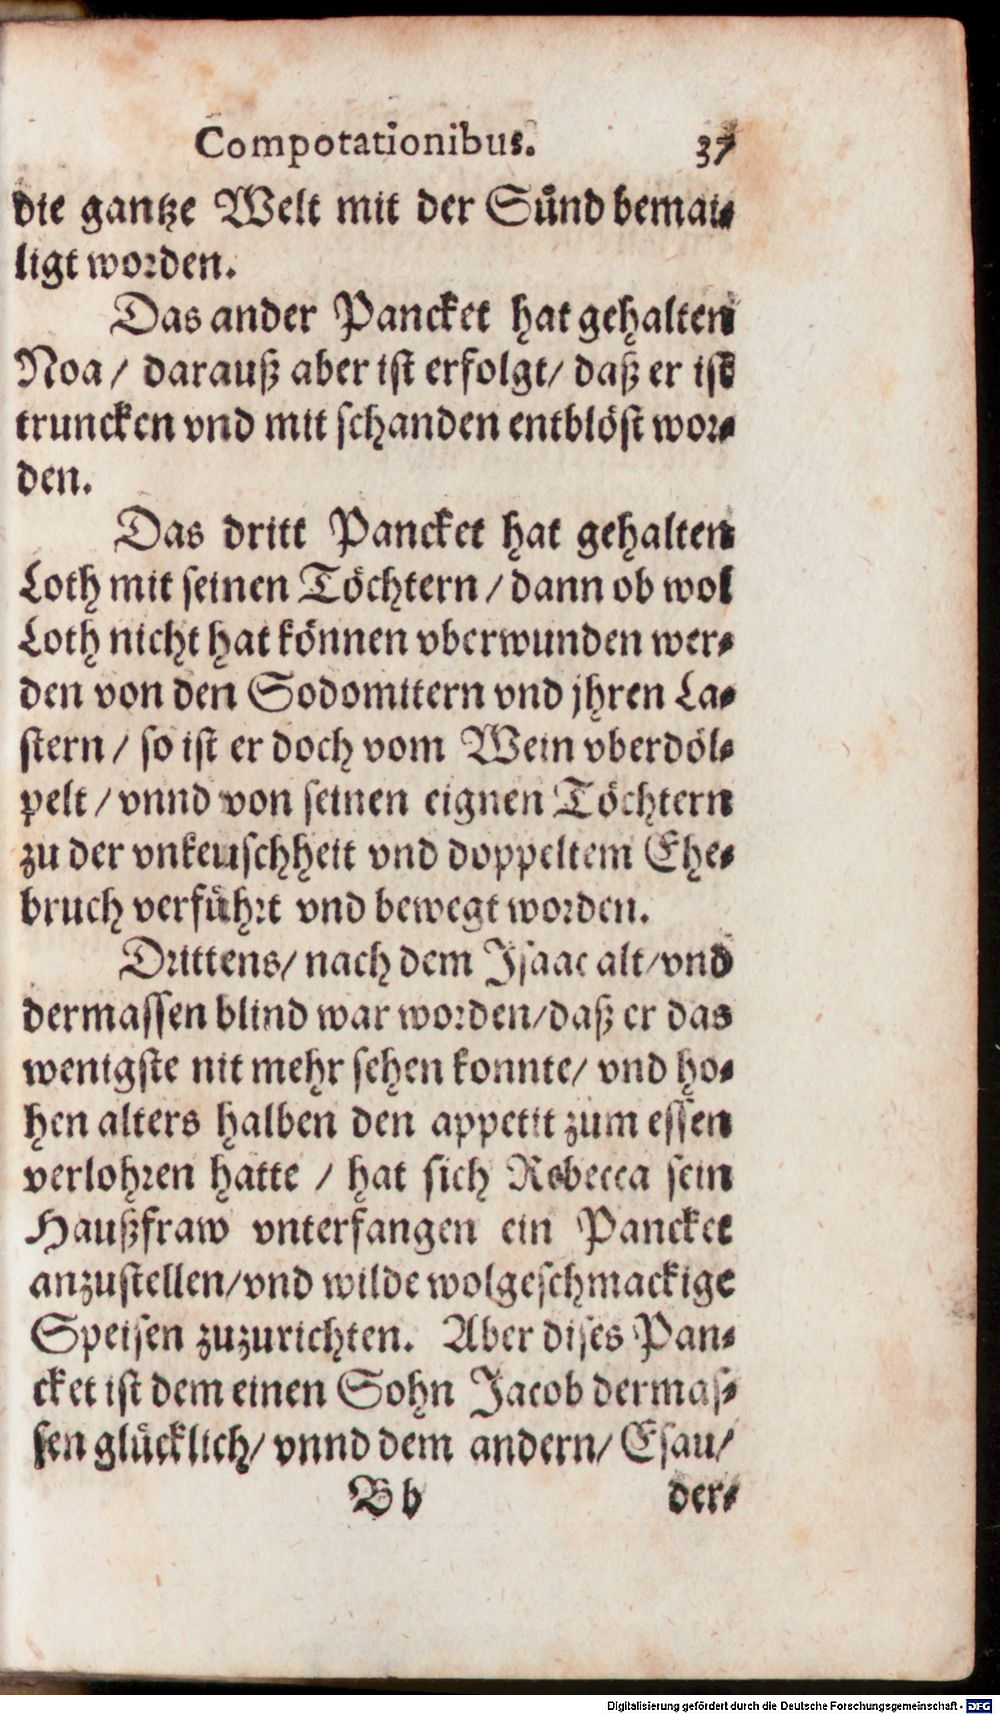 Compotationibus. 37
die gantze Welt mit der Sünd bemai-
ligt worden.
Das ander Pancket hat gehalten
Noa / darauß aber ist erfolgt / daß er ist
truncken vnd mit schanden entblöst wor-
den.
Das dritt Pancket hat gehalten
Loth mit seinen Töchtern / dann ob wol
Loth nicht hat können vberwunden wer-
den von den Sodomitern vnd jhren La-
stern / so ist er doch vom Wein vberdöl-
pelt / vnnd von seinen eignen Töchtern
zu der vnkeuschheit vnd doppeltem Ehe-
bruch verführt vnd bewegt worden.
Drittens / nach dem Isaac alt / vnd
dermassen blind war worden / daß er das
wenigste nit mehr sehen konnte / vnd ho-
hen alters halben den appetit zum essen
verlohren hatte / hat sich Rebecca sein
Haußfraw vnterfangen ein Pancket
anzustellen / vnd wilde wolgeschmackige
Speisen zuzurichten. Aber dises Pan-
cket ist dem einen Sohn Jacob dermas-
sen glücklich / vnnd dem andern / Esau /
Bb der-
Digitalisierung gefördert durch die Deutsche Forschungsgemeinschaft - DFG